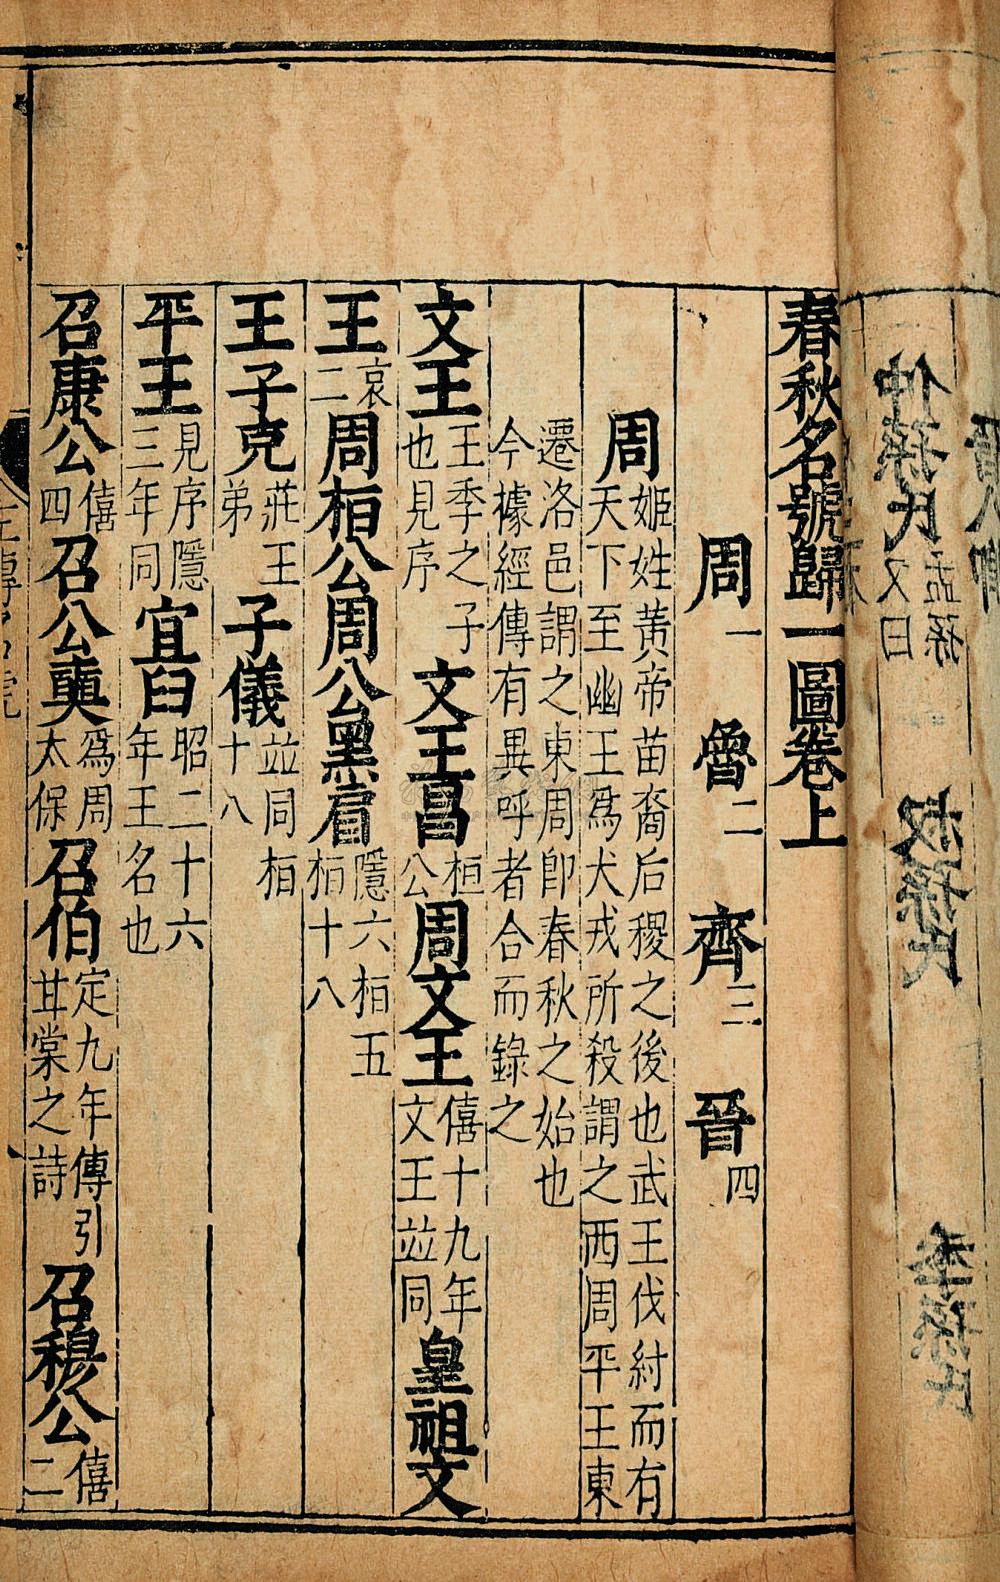 春秋名號歸一圖卷上
周一 魯二 齊三 晉四
周 姬姓黃帝苗裔后稷之後也武王伐紂而有
天下至幽王爲犬戎所殺謂之西周平王東
遷洛邑謂之東周卽春秋之始也
今據經傳有異呼者合而錄之
文王 王季之子也見序 文王昌 桓公 周文王 僖十九年文王竝同 皇祖文
王 哀二 周桓公周公黑肩 隱六桓五桓十八
王子克 莊王弟 子儀 竝同桓十八
平王 見序隱三年同 宜臼 昭二十六年王名也
召康公 僖四 召公奭 爲周太保 召伯 定九年傳引甘棠之詩 召穆公 僖二